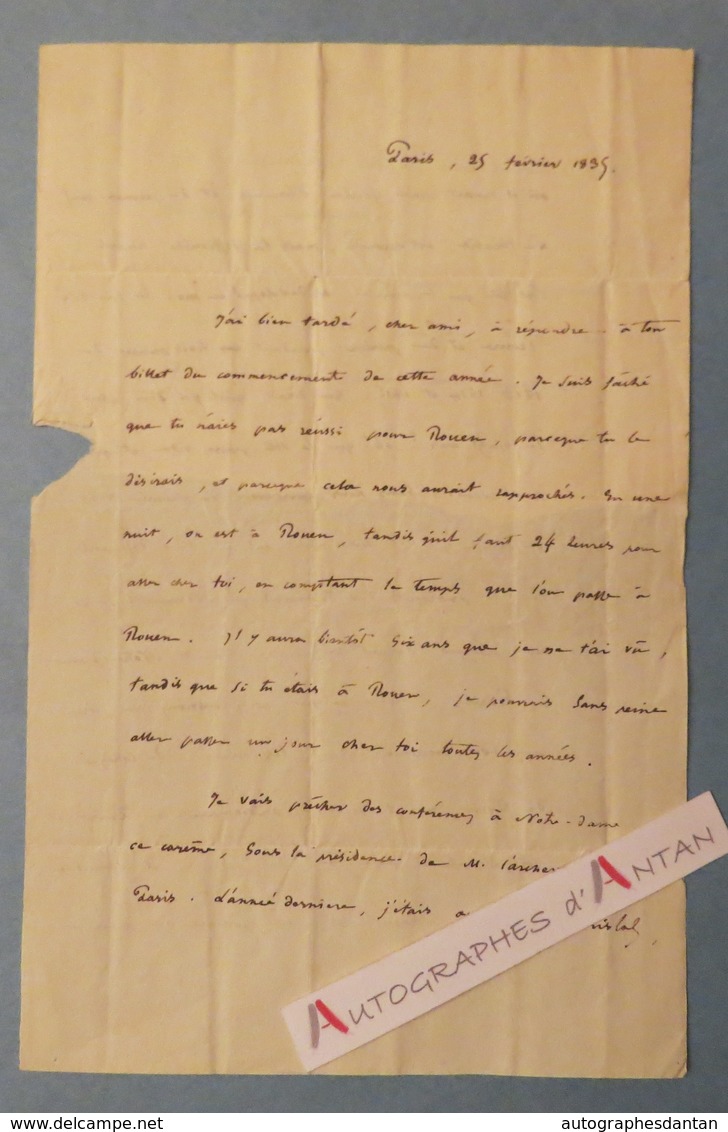 Paris, 25 février 1835.
J'ai bien tardé, cher ami, à répondre à ton
billet du commencement de cette année. Je suis fâché
que tu n'aies pas réussi pour Rouen, parceque tu le
désirais, et parceque cela nous aurait rapprochés. En une
nuit, on est à Rouen, tandis qu'il faut 24 heures pour
aller chez toi, en comptant le temps que l'on passe à
Rouen. Il y aura bientôt six ans que je ne t'ai vu,
tandis que si tu étais à Rouen, je pourrais sans peine
aller passer un jour chez toi toutes les années.
Je vais prêcher des conférences à Notre-Dame
ce carême, sous la présidence de M. l'archev
Paris. L'année dernière, j'étais a
AUTOGRAPHES d'ANTAN
autographesdantan
www.delcampe.net